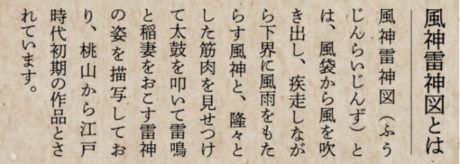 風神雷神図とは
風神雷神図（ふう
じんらいじんず）と
は、風袋から風を吹
き出し、疾走しなが
ら下界に風雨をもた
らす風神と、隆々と
した筋肉を見せつけ
て太鼓を叩いて雷鳴
と稲妻をおこす雷神
の姿を描写してお
り、桃山から江戸
時代初期の作品とさ
れています。